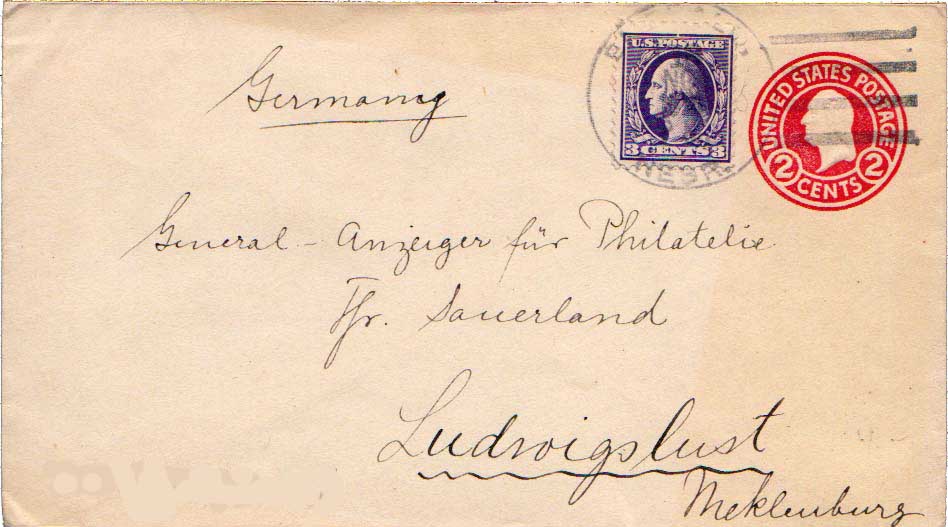 U.S. POSTAGE
3 CENTS 3
NEBR.
UNITED STATES POSTAGE
2 CENTS 2
Germany
General - Anzeiger für Philatelie
Fr. Sauerland
Ludwigslust
Meklenburg